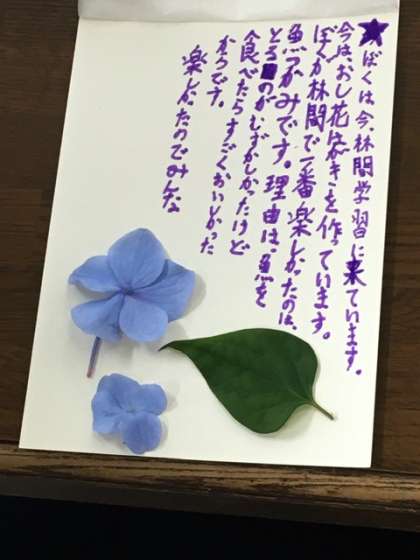 ★ぼくは今、林間学習に来ています。
今は、おし花はがきを作っています。
ぼくが林間で一番楽しかったのは、
魚つかみです。理由は、魚を
とるのがむずかしかったけど
食べたらすごくおいしかった
からです。
楽しかったのでみんな